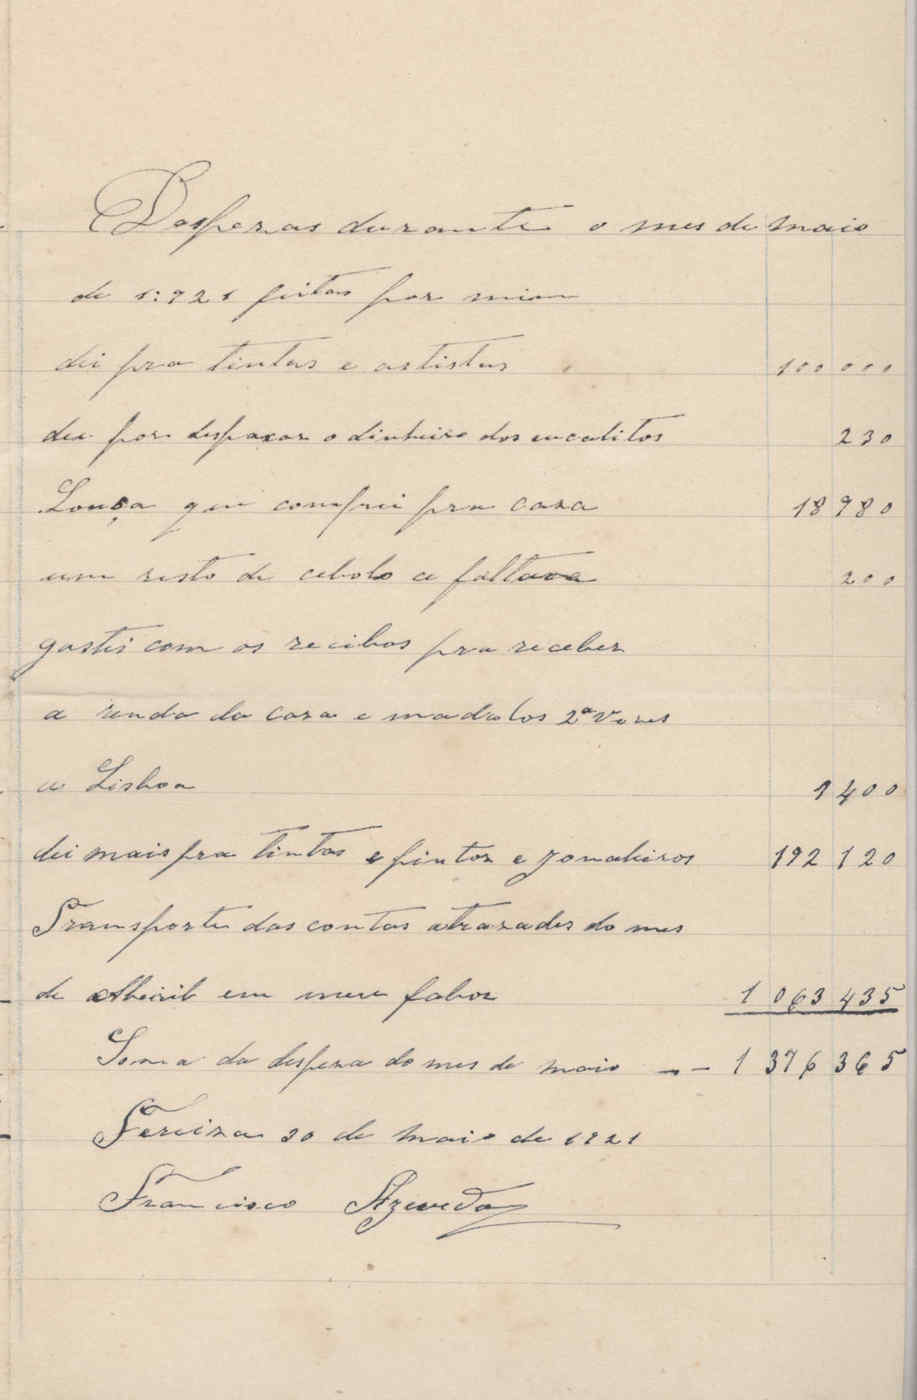 Despezas durante o mes de maio
de 1:921 feitas por mim
dei pra tintas e artistas 100 000
dei por despaxar o dinheiro dos eucalitos 230
Louça que comprei pra caza 18 980
um resto de cebolo a faltava 200
gastei com os recibos pra receber
a renda da caza e madalos 2ª Vezes
a Lisboa 1 400
dei mais pra tintas e pintor e jornaleiros 192 120
Transporte das contas atrazades do mes
de Abriil em meu fabor 1 063 435
Soma da despeza do mes de maio -- 1 376 365
Fereiza 30 de maio de 1921
Francisco Azevedo